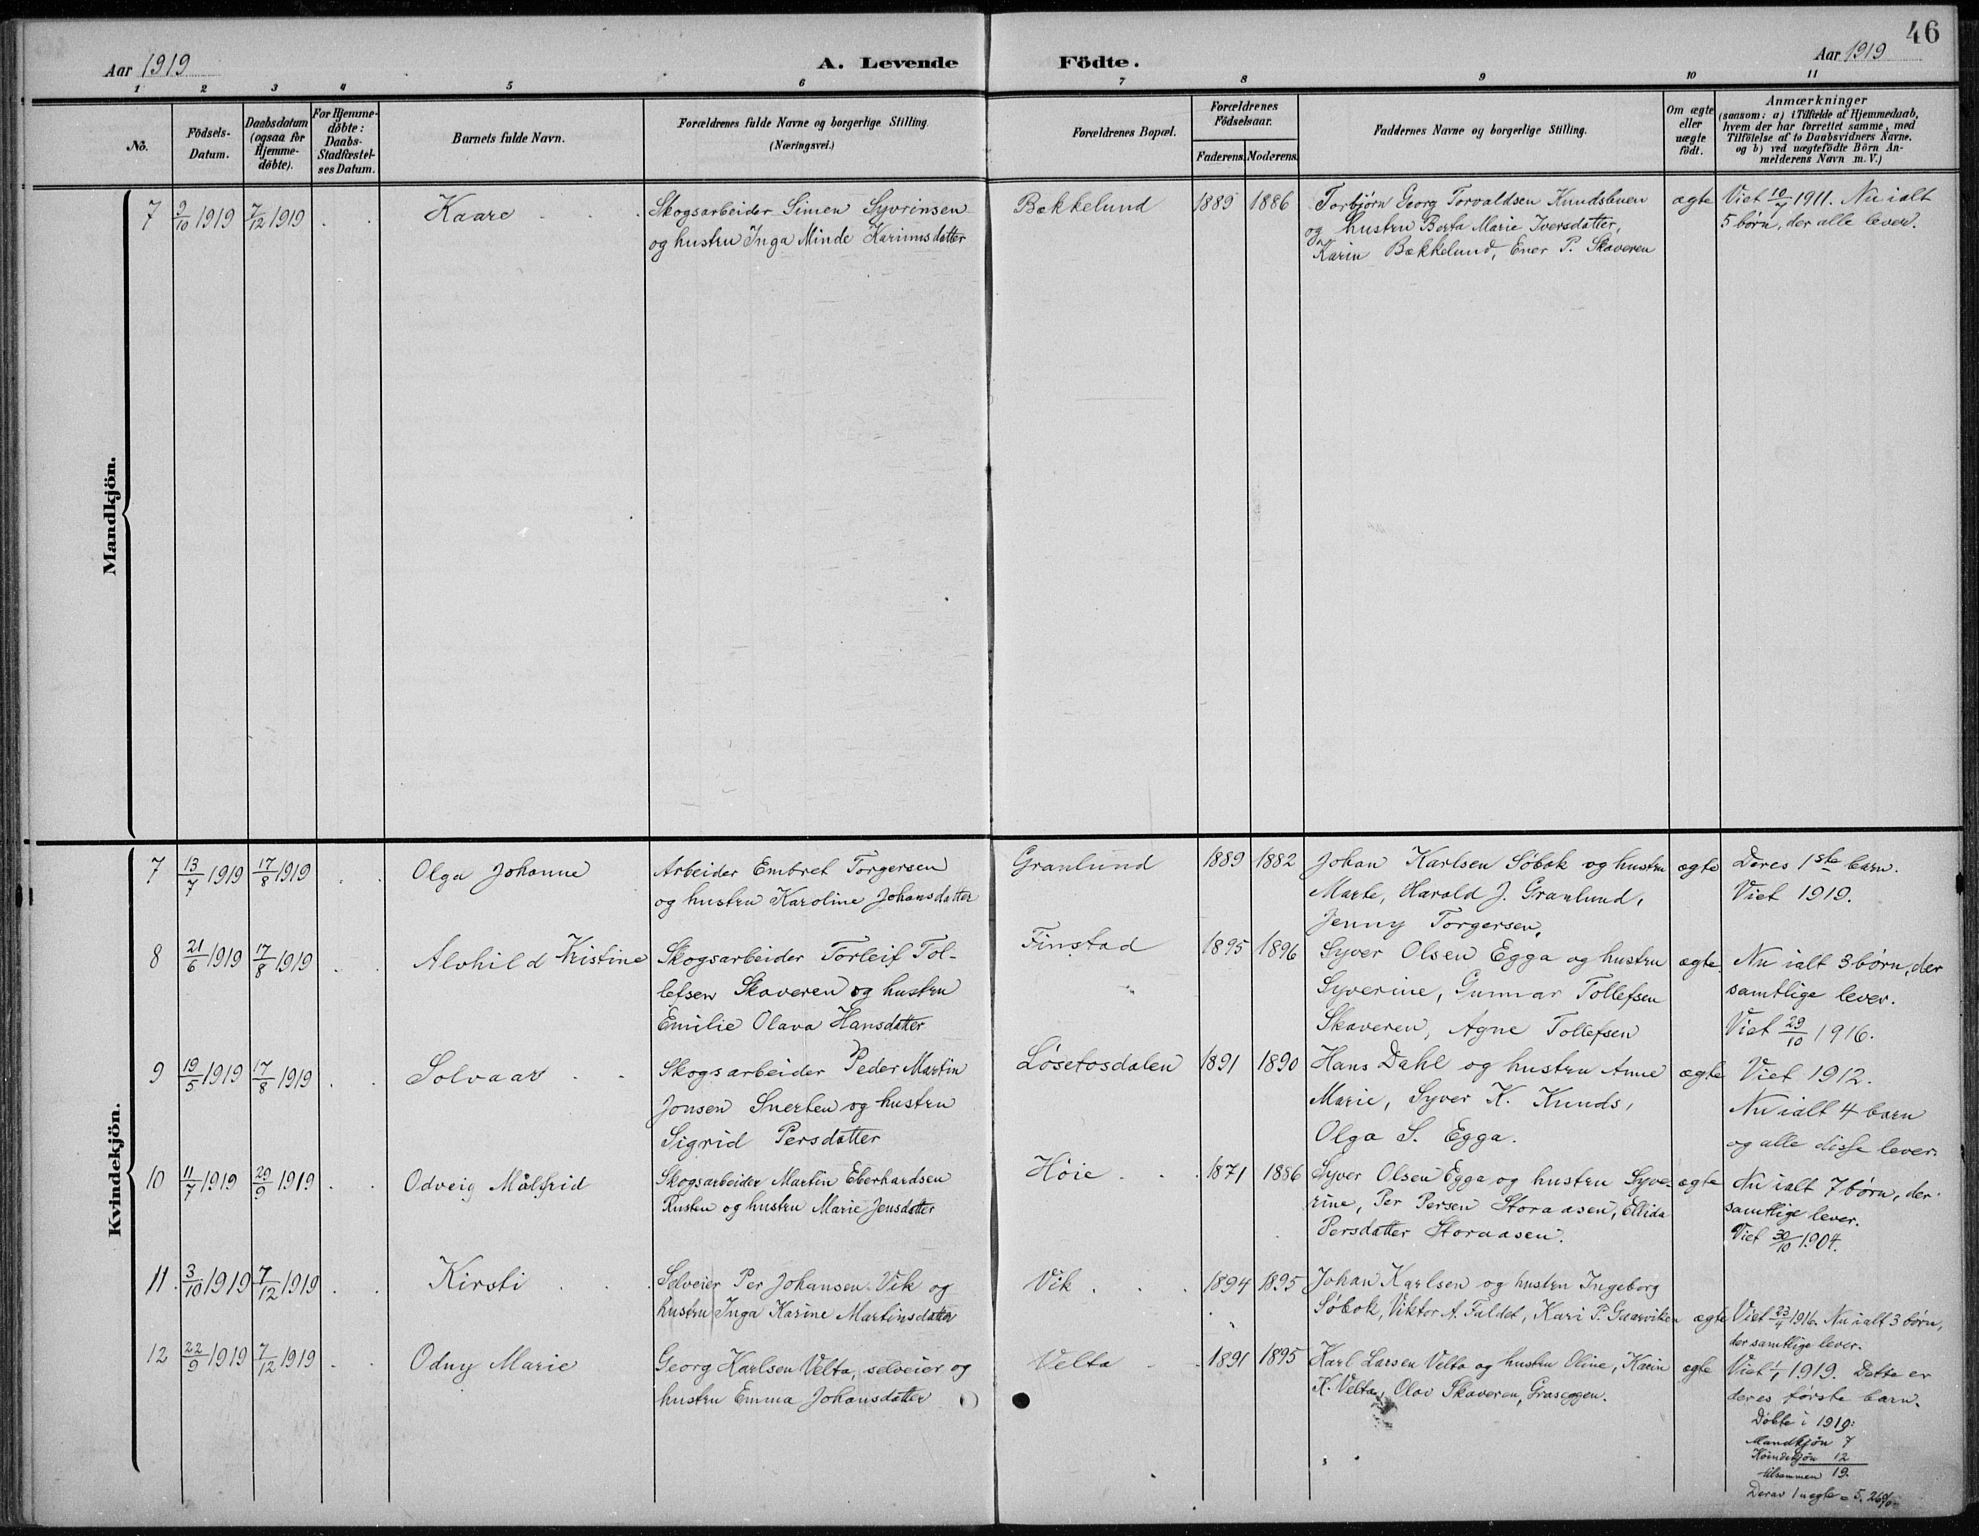 46
Aar 1919
A. Levende Födte.
Aar 1919
1 2 3 4 5 6 7 8 9 10 11
No.
Födsels-
Datum.
Daabsdatum
(ogsaa for
Hjemme-
döbte).
For Hjemme-
döbte:
Daabs-
Stadfæstel-
ses Datum.
Barnets fulde Navn.
Forældrenes fulde Navne og borgerlige Stilling
(Næringsvei.)
Forældrenes Bopæl.
Forældrenes
Födselsaar.
Faderens. Moderens.
Faddernes Navne og borgerlige Stilling.
Om ægte
eller
uægte
födt.
Anmærkninger
(saasom: a) i Tilfælde af Hjemmedaab,
hvem der har forrettet samme, med
Tilföielse af to Daabsvidners Navne.
og b) ved uægtefödte Börn An-
melderens Navn m. V.)
Mandkjön.
7 9/10 1919 7/12 1919 Kaare
Skogsarbeider Simen Syvrinsen
og hustru Inga Minde Karinusdatter
Bækkelund 1889 1886
Torbjørn Georg Torvaldsen Kundsbuen
og hustru Berta Marie Iversdatter,
Karin Bækkelund, Ener P. Skaveren
ægte
Viet 10/7 1911. Nu ialt
5 børn, der alle lever.
Kvindekjön.
7 13/7 1919 17/8 1919 Olga Johanne
Arbeider Embret Torgersen
og hustru Karoline Johansdatter
Granlund 1889 1882
Johan Karlsen Søbak og hustru
Marte, Harald J. Granlund,
Jenny Torgersen.
ægte
Deres 1ste barn.
Viet 1919.
8 21/6 1919 17/8 1919 Alvhild Kristine
Skogsarbeider Torleif Tol-
lefsen Skaveren og hustru
Emilie Olava Hansdatter
Finstad 1895 1896
Syver Olsen Egga og hustru
Syverine, Gunnar Tollefsen
Skaveren, Agne Tollefsen
ægte
Nu ialt 3 børn, der
samtlige lever.
Viet 29/10 1916.
9 19/5 1919 17/8 1919 Solvaar
Skogsarbeider Peder Martin
Jonsen Snerten og hustru
Sigrid Persdatter
Løsetosdalen 1891 1890
Hans Dahl og hustru Anne
Marie, Syver K. Kunds,
Olga S. Egga.
ægte
Viet 1912.
Nu ialt 4 barn
og alle disse lever.
10 11/7 1919 29/9 1919 Odveig Målfrid
Skogsarbeider Martin Eberhardsen
Rusten og hustru Marie Jensdatter
Høie 1871 1886
Syver Olsen Egga og hustru Syve-
rine, Per Persen Storaasen, Ellida
Persdatter Storaasen.
ægte
Nu ialt 7 børn, der
samtlige lever.
Viet 30/10 1904.
11 3/10 1919 7/12 1919 Kirsti
Selveier Per Johansen Vik og
hustru Inga Karine Martinsdatter
Vik 1894 1895
Johan Karlsen og hustru Ingeborg
Søbak, Viktor A. Faldet, Kari P. Gaarviken
ægte
Viet 23/4 1916. Nu ialt 3 børn,
der samtlige lever.
12 22/9 1919 7/12 1919 Odny Marie
Georg Karlsen Velta, selveier og
hustru Emma Johansdatter
Velta 1891 1895
Karl Larsen Velta og hustru Oline, Karin
K. Velta, Olav Skaveren, Graseggen.
ægte
Viet 1919. Dette er
deres første barn.
Döbte i 1919:
Mandkjön 7
Kvindekjön 12
tilsammen 19.
Derav 1 uegte = 5.26%